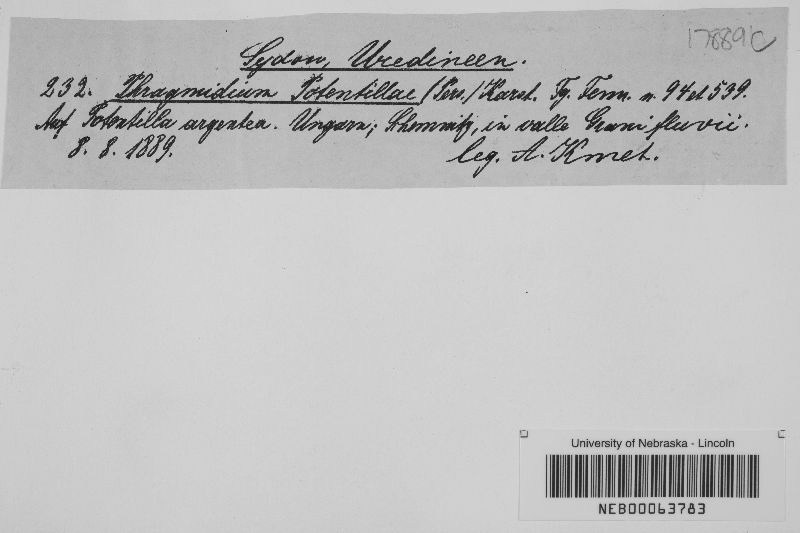 17889c
Sydow, Uredineen.
232. Phragmidium Potentillae (Pers.) Karst. Fg. Fenn. n. 94 et 539.
Auf Potentilla argentea. Ungarn; Schemnitz, in valle Grani fluvii.
8. 8. 1889. leg. A. Kmet.
University of Nebraska - Lincoln
NEB00063783